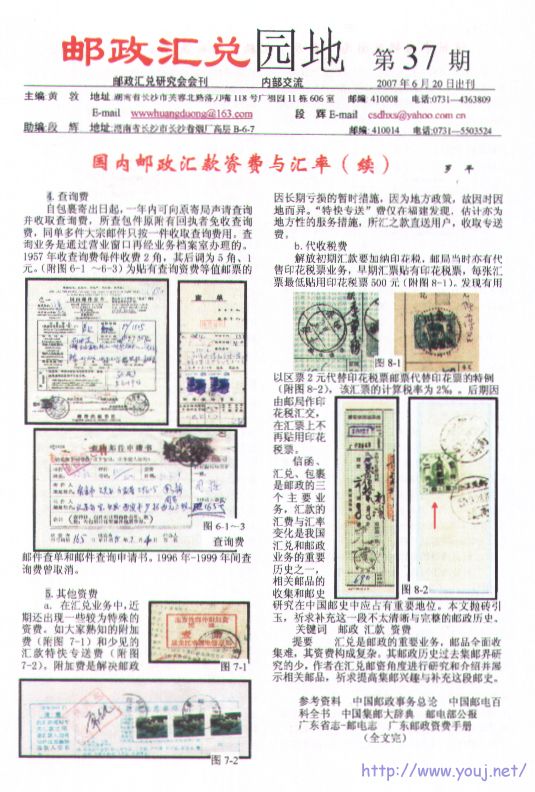 邮政汇兑园地 第37期
邮政汇兑研究会会刊 内部交流 2007年6月20日出刊
主编 黄 敦 地址 湖南省长沙市芙蓉北路 118号 11栋606室 邮编 410008 电话:0731—4363809
E-mail wwwhuangduong@163.com 段 辉 E-mail csdhxx@yahoo.com.cn
助编:段 辉 地址:湖南省长沙市长沙卷烟厂高层B-6-7 邮编 410014 电话:0731—5503524
国内邮政汇款资费与汇率(续) 罗 平
4. 查询费
自包裹寄出日起,一年内可向原寄局声请查询
并收取查询费,所查包件原附有回执者免收查询
费,同单多件大宗邮件只按一件收取查询费用。查
询业务是通过营业窗口再经业务档案室办理的。
1957年收查询费每件收费2角,其后调为5角、1
元。(附图6-1 ~6-3)为贴有查询资费等值邮票的
查 单
图 6-1~3
查询费
邮件查单和邮件查询申请书。1996年-1999年间查
询费曾取消。
5. 其他资费
a. 在汇兑业务中,近
期还出现一些较为特殊的
资费。如大家熟知的附加
费(附图7-1)和少见的
汇款特快专送费(附图
7-2)。附加费是解决邮政
图7-1
图 7-2
因长期亏损的暂时措施,因为地方政策,故因时因
地而异。“特快专送”费仅在福建发现,估计亦为
地方性的服务措施,所汇之款直送用户,收取专送
费。
b. 代收税费
解放初期汇款要加纳印花税。邮局当时亦有代
售印花税票业务,早期汇票贴有印花税票,每张汇
票最低贴用印花税票500元(附图8-1)。发现有用
图 8-1
以区票2元代替印花税票邮票代替印花票的特例
(附图8-2),该汇票的计算税率为2‰。后期因
由邮局作印
花税汇交,
在汇票上不
再贴用印花
税票。
信函、
汇兑、包裹
是邮政的三
个主要业
务,汇款的
汇费与汇率
变化是我国
汇兑和邮政
业务的重要
历史之一,
相关邮品的
收集和邮史
图 8-2
研究在中国邮史中应占有重要地位。本文抛砖引
玉,祈求补充这一段不太清晰与完整的邮政历史。
关键词 邮政 汇款 资费
提要 汇兑是邮政的重要业务,邮品全面收
集难,其资费构成复杂。其邮政历史过去集邮界研
究的少,作者在汇兑邮资角度进行研究和介绍并展
示相关邮品,祈求提高集邮兴趣与补充这段邮史。
参考资料 中国邮政事务总论 中国邮电百
科全书 中国集邮大辞典 邮电部公报
广东省志-邮电志 广东邮政资费手册
(全文完)
http://www.youj.net/